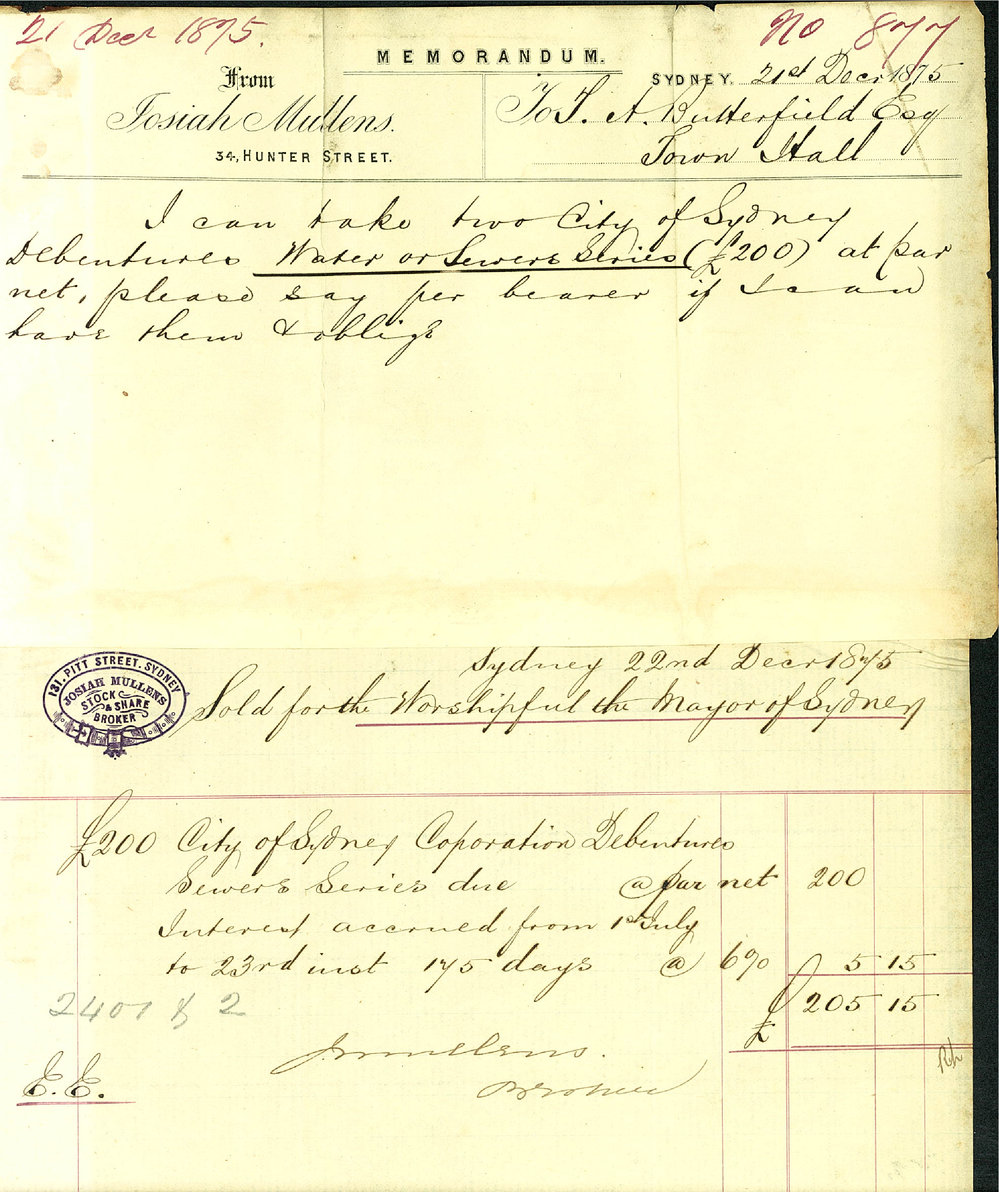 21 Decr 1875.
No 877
MEMORANDUM.
From
Josiah Mullens.
34, HUNTER STREET.
SYDNEY. 21st Decr 1875
To T. A. Butterfield Esq
Town Hall
I can take two City of Sydney
Debentures Water or Sewers Series (£200) at par
net, please say per bearer if I can
have them & oblige
131, PITT STREET. SYDNEY
JOSIAH MULLENS
STOCK
& SHARE
BROKER
Sydney 22nd Decr 1875
Sold for the Worshipful the Mayor of Sydney
£200 City of Sydney Coporation Debentures
Sewers Series due @ par net 200
Interest accrued from 1st July
to 23rd inst 175 days @ 6% 5 15
£ 205 15
2401 & 2
J Mullens.
Broker
E.E.